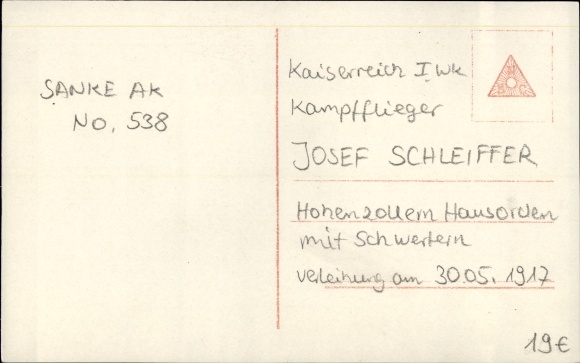 SANKE AK
NO. 538
Kaiserreich I WK
Kampfflieger
JOSEF SCHLEIFFER
Hohenzollern Hausorden
mit Schwertern
verleihung am 30.05.1917
19€
N
B C